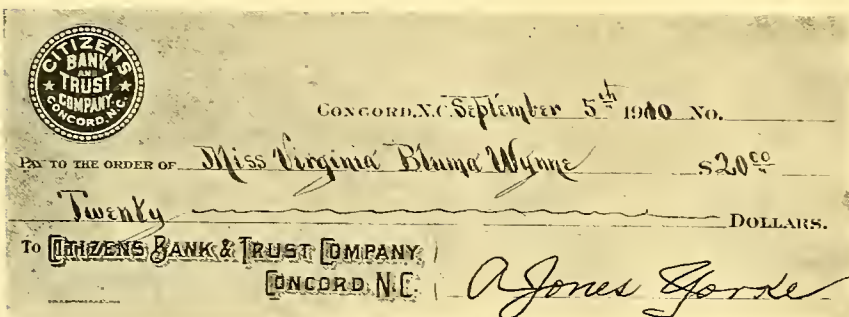 CITIZENS
BANK
AND
TRUST
COMPANY
CONCORD, N.C.
CONCORD, N.C. September 5th 1910 No.
PAY TO THE ORDER OF Miss Virginia Bluma Wynne $20 00
Twenty DOLLARS.
To CITIZENS BANK & TRUST COMPANY
CONCORD N.C.
A Jones Yorke